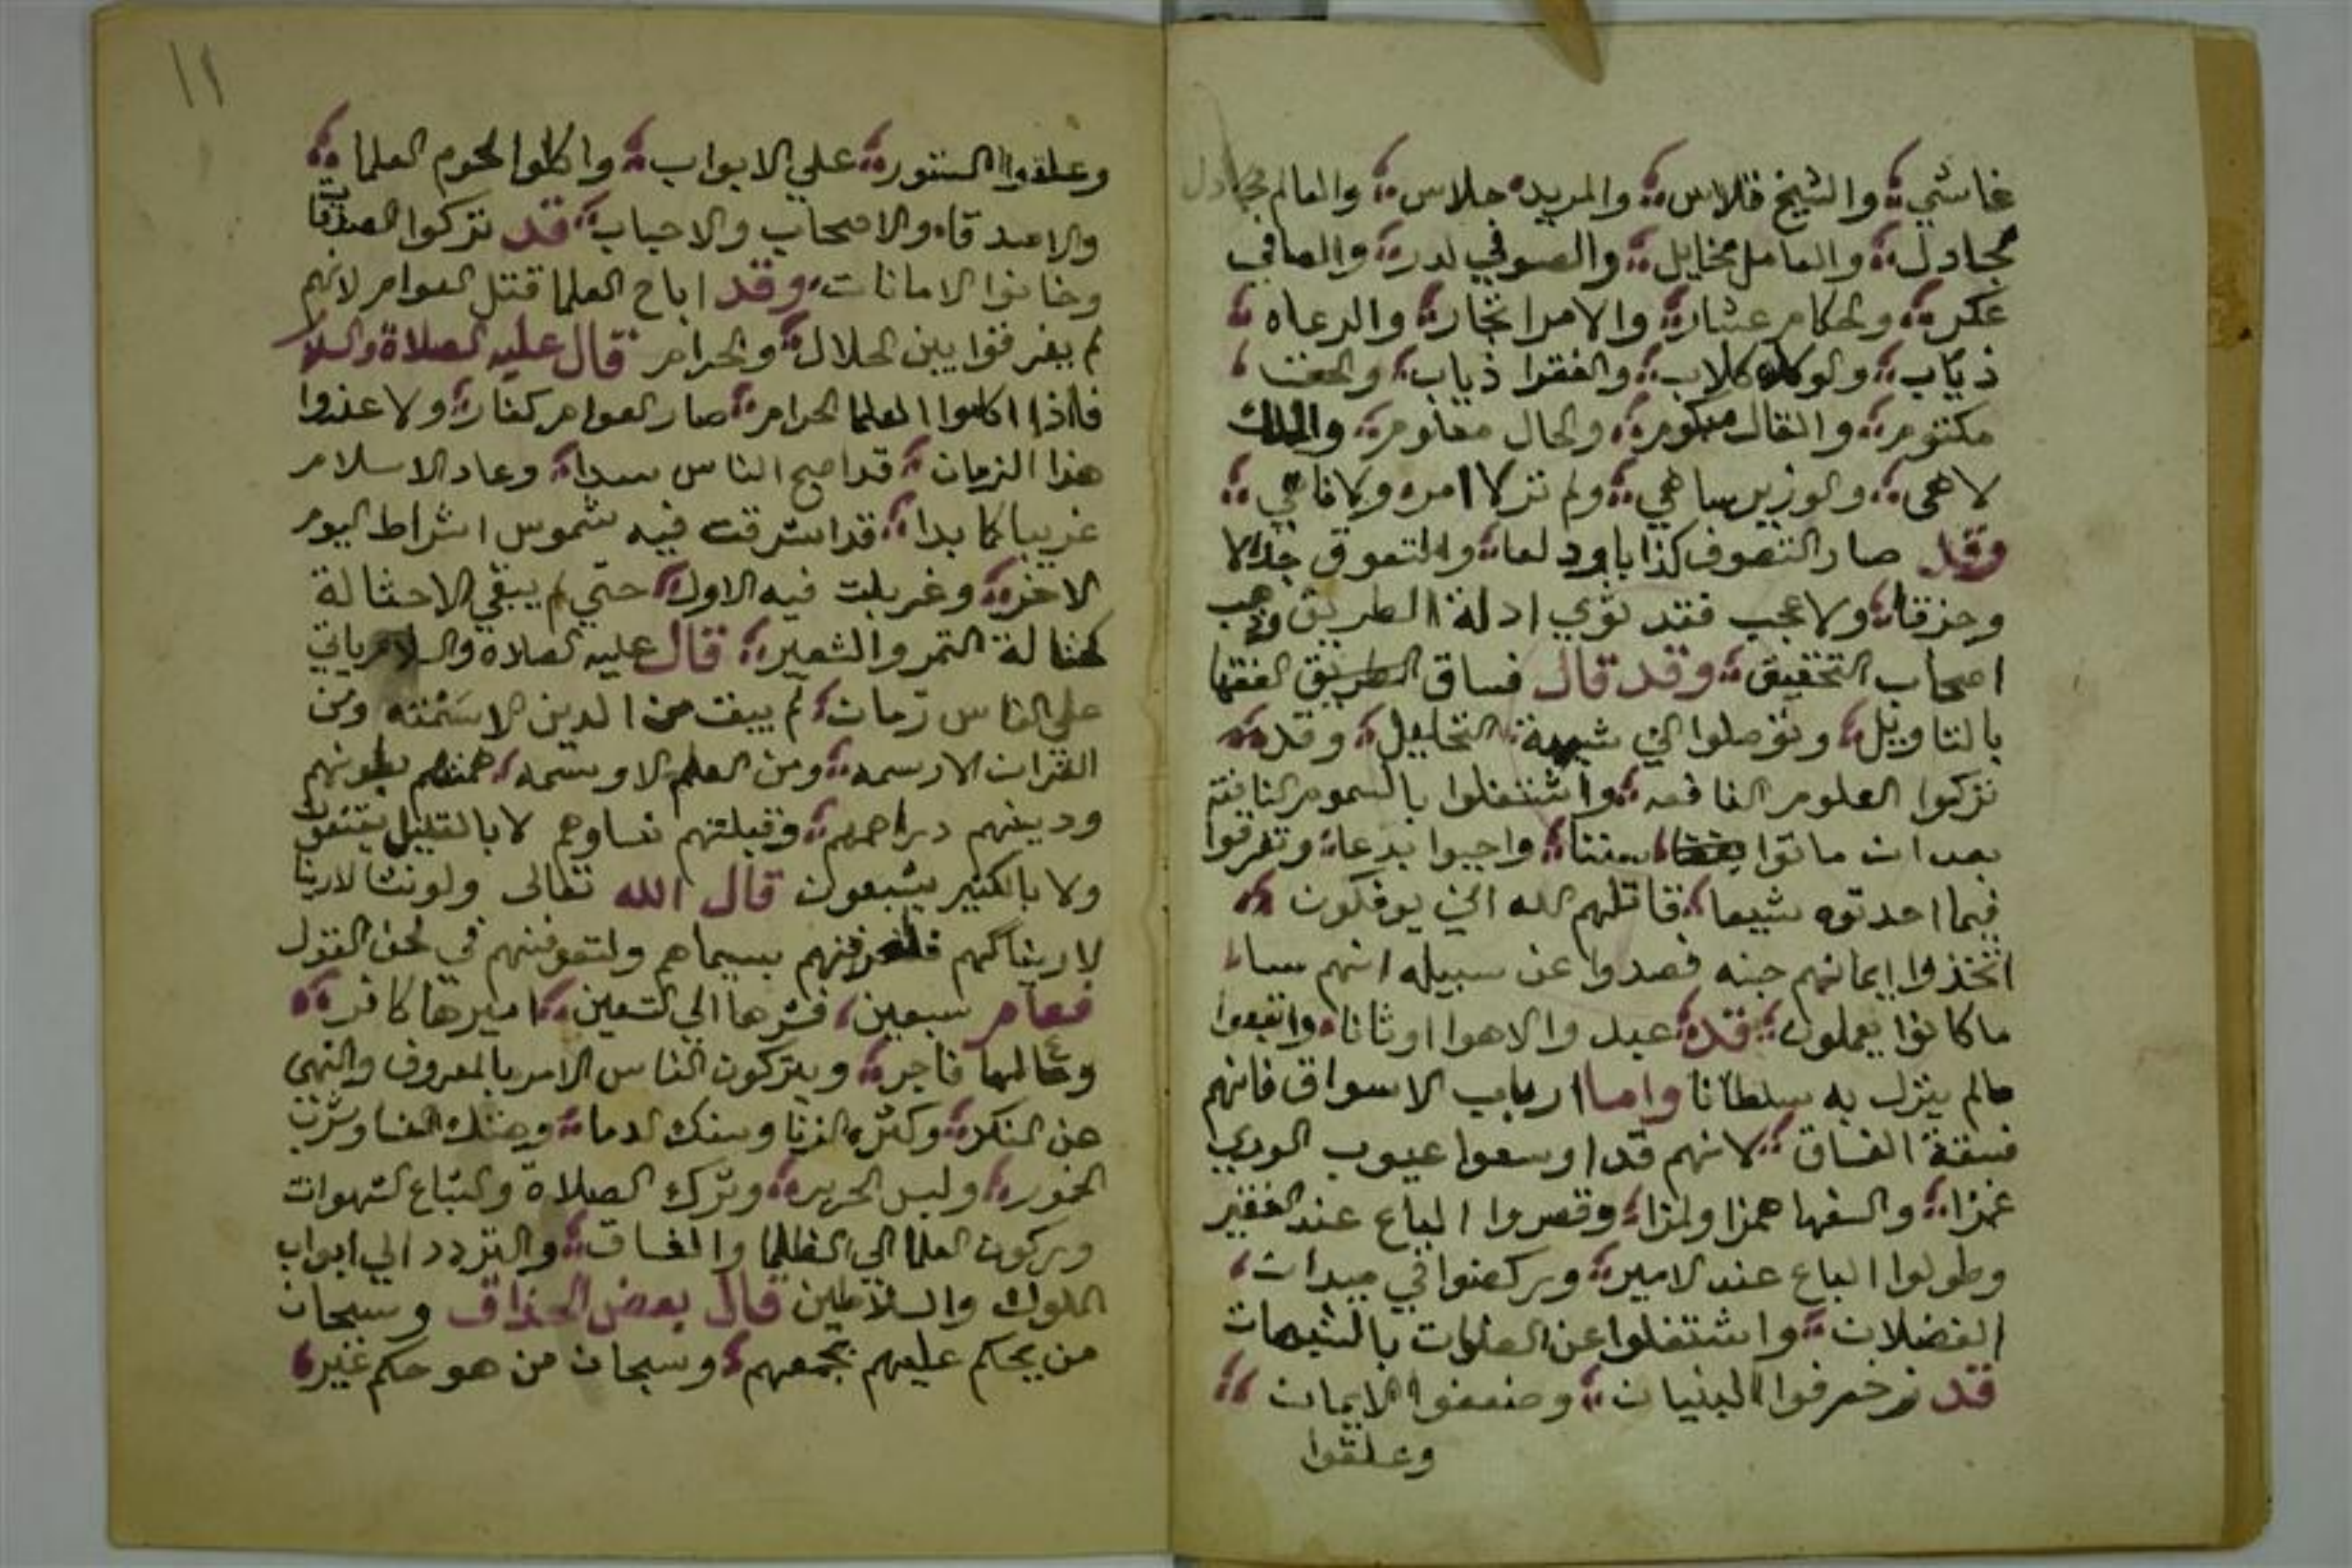 غاشي والشيخ قلاس والمريد جلاس والعالم مجادل
مجادل والعامل مخايل والصوفي لدر والصافي
عكر ولحكام عشار والامرا تجار والرعاه
ذياب والوكلا كلاب والفقرا ذباب والحق
مكتوم والقال والحال معلوم والملك
لاهي والوزير ساهي ولم تر لا امر ولا ناهي
وقد صار التصوف كذابا ودلعا والتعوق جدالا
وحزقا ولا عجب فقد توي ادلة الطريق وذهب
اصحاب التحقيق وقد قال فساق الطريق الفقها
بالتاويل وتوصلوا الي شبهة التحليل وقد
تركوا العلوم النافعه واشتغلوا بالسموم الناقعة
بعد ان ماتوا سننا واحيوا بدعا وتفرقوا
فيما احدثوه شيعا فقاتلهم الله اني يوفكون
اتخذوا ايمانهم جنه فصدوا عن سبيله انهم ساء
ماكانوا يعملون قد عبدوا الاهوا اوثانا واتبعوا
مالم ينزل به سلطانا واما ارباب الاسواق فانهم
فسقة الفساق لانهم قد اوسعوا عيوب الوري
غمزا والسفها همزا ولمزا وقصروا الباع عند الفقير
وطولوا الباع عند الامير وركضوا في ميدان
الفضلات واشتغلوا عن الصلوات بالشبهات
قد زخرفوا البنيان وضعفوا الايمان
وعلقوا
١١
وعلقوا الستور علي الابواب واكلوا لحوم العلما
والاصدقاه والاصحاب والاحباب قد تركوا الصدقات
وخانوا الامانات وقد اباح العلما قتل العوام لانهم
لم يفرقوا بين الحلال والحرام قال عليه الصلاة والسلا
فااذا اكلوا العلما الحرام صار العوام كفار ولا عذوا
هذا الزمان قد اصبح الناس سدا وعاد الاسلام
غريبا كما بدا قد اشرقت فيه شموس اشراط اليوم
الاخر وغربلت فيه الاول حتي لم يبقي الاحثالة
كحثالة التمر والشعير قال عليه الصلاه والسلام ياتي
علي الناس زمان لم يبقت من الدين الا سمته ومن
القران الارسمه ومن العلم الا وسمه همتهم بطونهم
ودينهم دراهمهم وقبلتهم نساوهم لا بالقليل يقنعون
ولا بالكثير يشبعون قال الله تعالى ولونشا لارينا
لاريناكهم فلعرفتهم بسيماهم ولتعرفنهم في لحن القول
فعام سبعين فشرها الي التسعين اميرها كافر
وعالمها فاجر ويتركون الناس الامر بالمعروف والنهي
عن المنكر وكثره الزنا وسفك الدما وشرب
الخمور ولبس الحرير وترك الصلاة والتباع الشهوات
ويركون العلما الي الظلما والفساق والتردد الي ابواب
الملوك والسلاطين قال بعض الحذاق وسبحان
من يحكم عليهم بجمعهم وسبحان من هو حكم غير